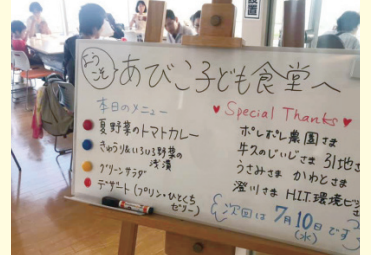 ようこそ
あびこ子ども食堂へ
本日のメニュー
夏野菜のトマトカレー
きゅうり&いろいろ野菜の
浅漬
グリーンサラダ
デザート(プリン・ひとくち
ゼリー)
♥ Special Thanks ♥
ポレポレ農園さま
牛久のじいじさま 引地さ
うさみさま かわとさま
澄川さま H.I.T.環境ビジ
次回は7月10日です
(水)